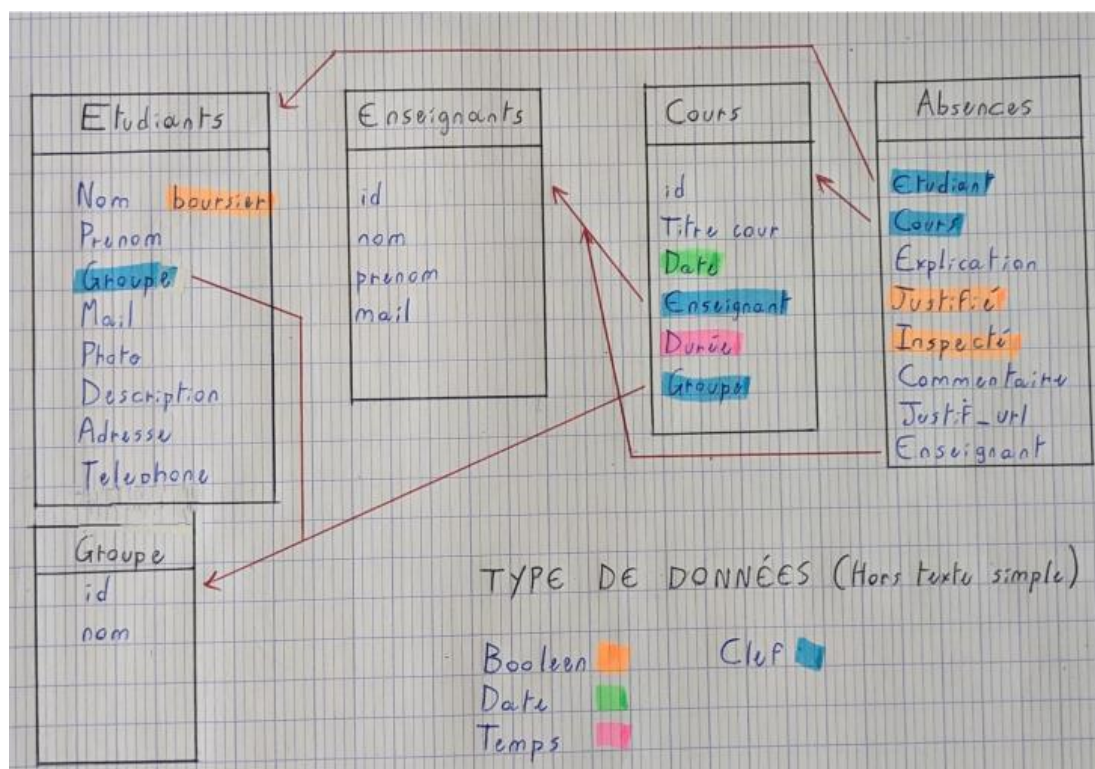 Etudiants
Nom boursier
Prenom
Groupe
Mail
Photo
Description
Adresse
Telephone
Enseignants
id
nom
prenom
mail
Cours
id
Titre cour
Date
Enseignant
Durée
Groupe
Absences
Etudiant
Cours
Explication
Justifié
Inspecté
Commentaire
Justif_url
Enseignant
Groupe
id
nom
TYPE DE DONNÉES (Hors texte simple)
Booleen
Date
Temps
Clef